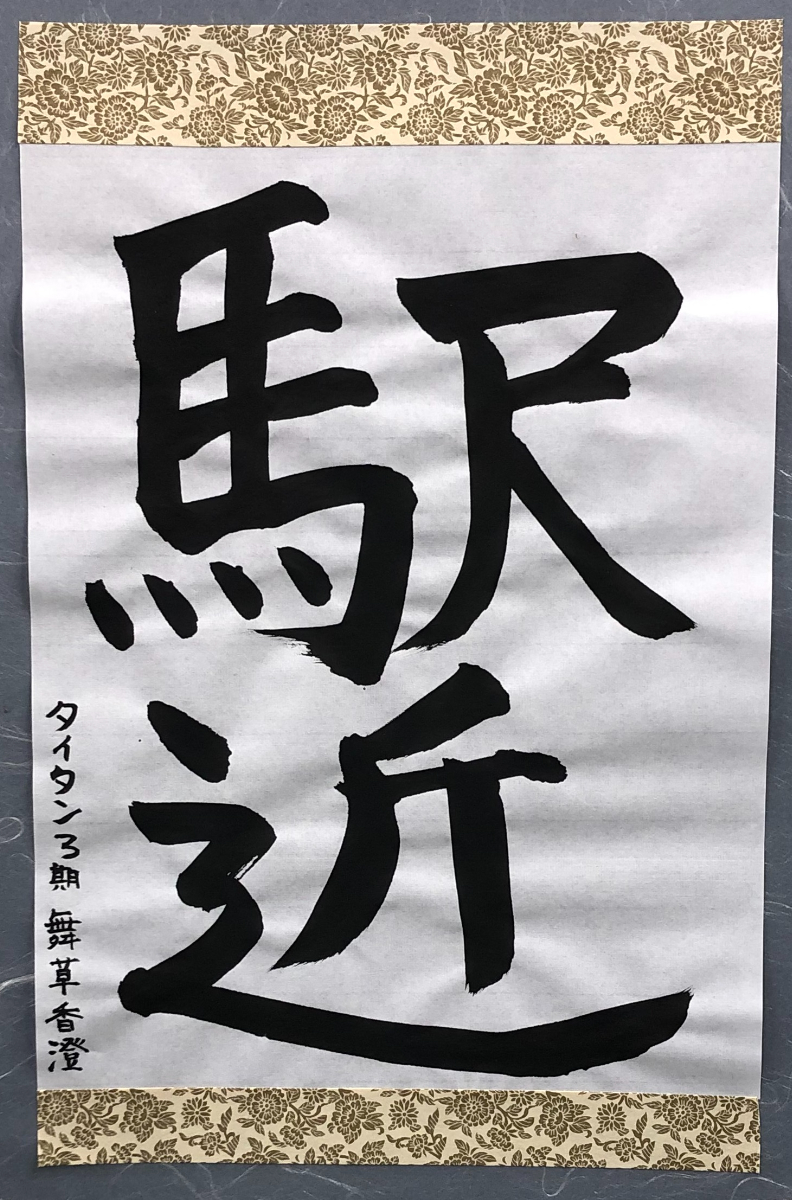 駅近
タイタン3期 舞草香澄